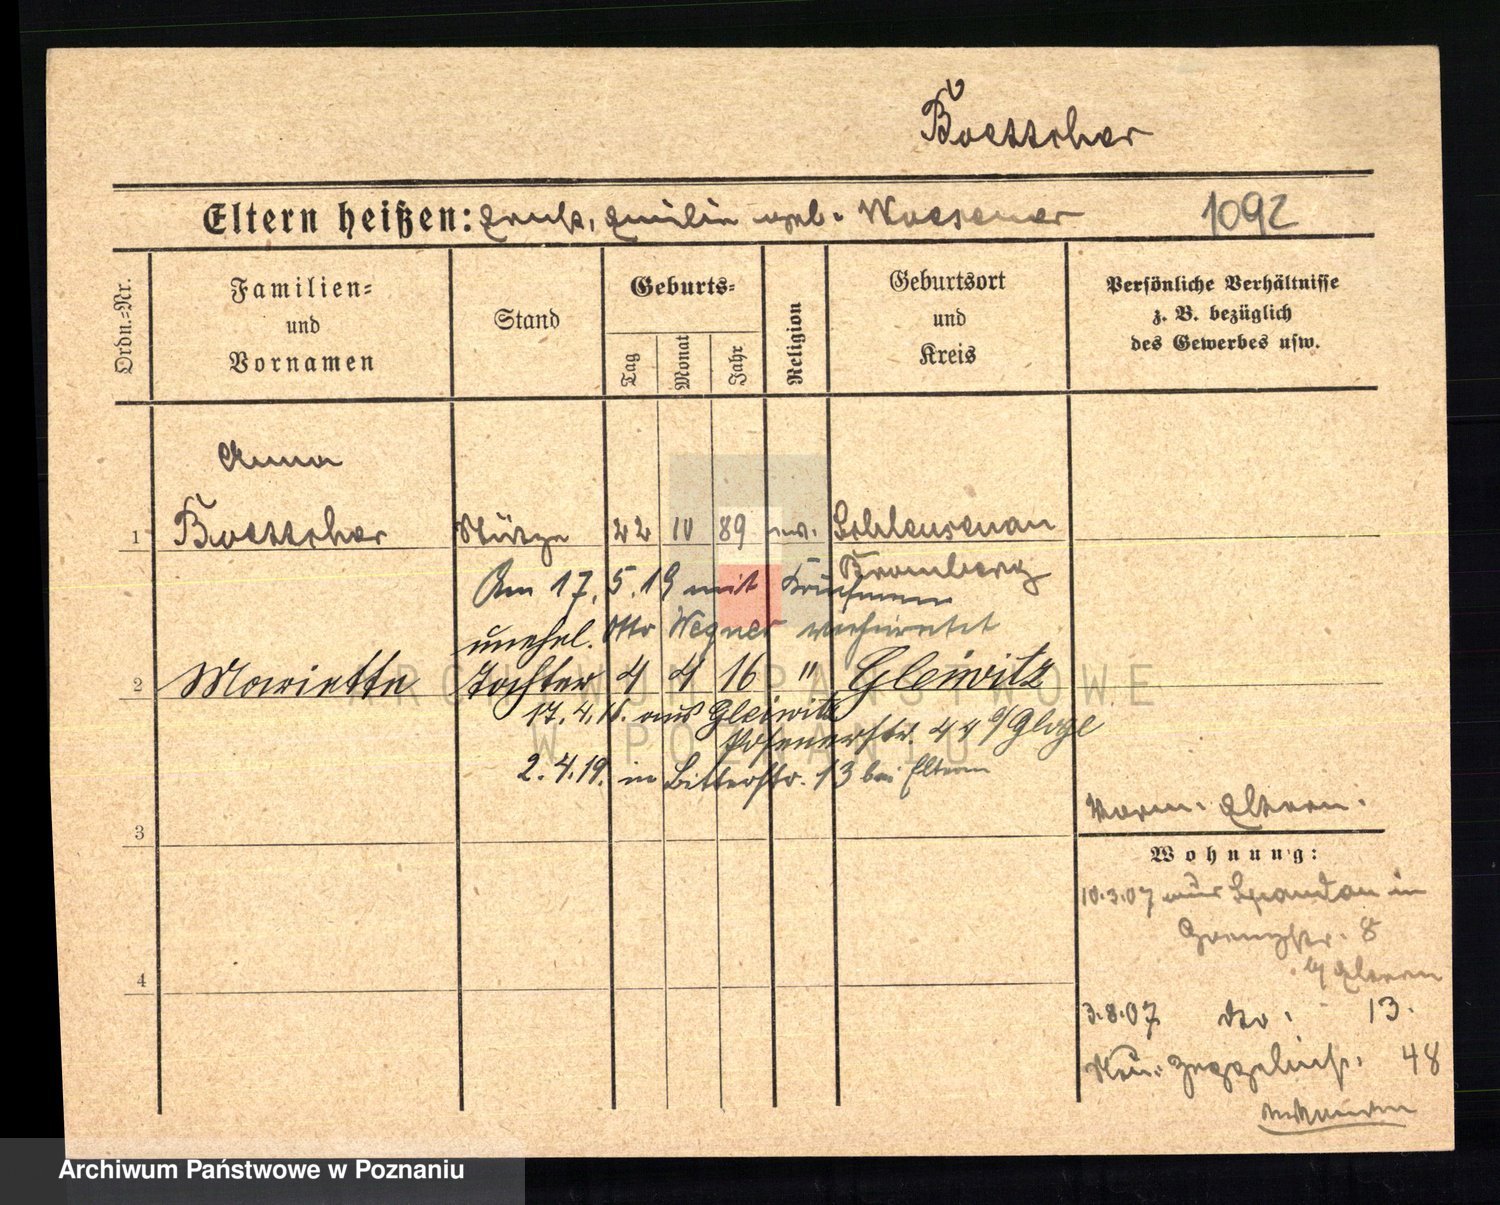 Boettcher
Eltern heißen: Ernst, Emilie geb. Woesener 1092
Ordn.-Nr.
Familien- und Vornamen
Stand
Geburts-
Tag
Monat
Jahr
Religion
Geburtsort und Kreis
Persönliche Verhältnisse z. B. bezüglich des Gewerbes usw.
Anna
1 Boettcher Stütze 22 10 89 ev. Schleusenau
Bromberg
Am 17. 5. 19 mit Kaufmann
Otto Wegner verheiratet
unehel.
2 Mariette Tochter 4 4 16 " Gleiwitz
17. 4. 16. aus Gleiwitz
Posenerstr. 44
2. 4. 19. in Bitterstr. 13 bei Eltern
3
Verm. Eltern.
Wohnung:
10.3.07 aus Spandau in
Grenzstr. 8
b/ Eltern
4
3.8.07 dto. 13.
Neu. Zeppelinstr. 48
ARCHIWUM PAŃSTWOWE
W POZNANIU
Archiwum Państwowe w Poznaniu